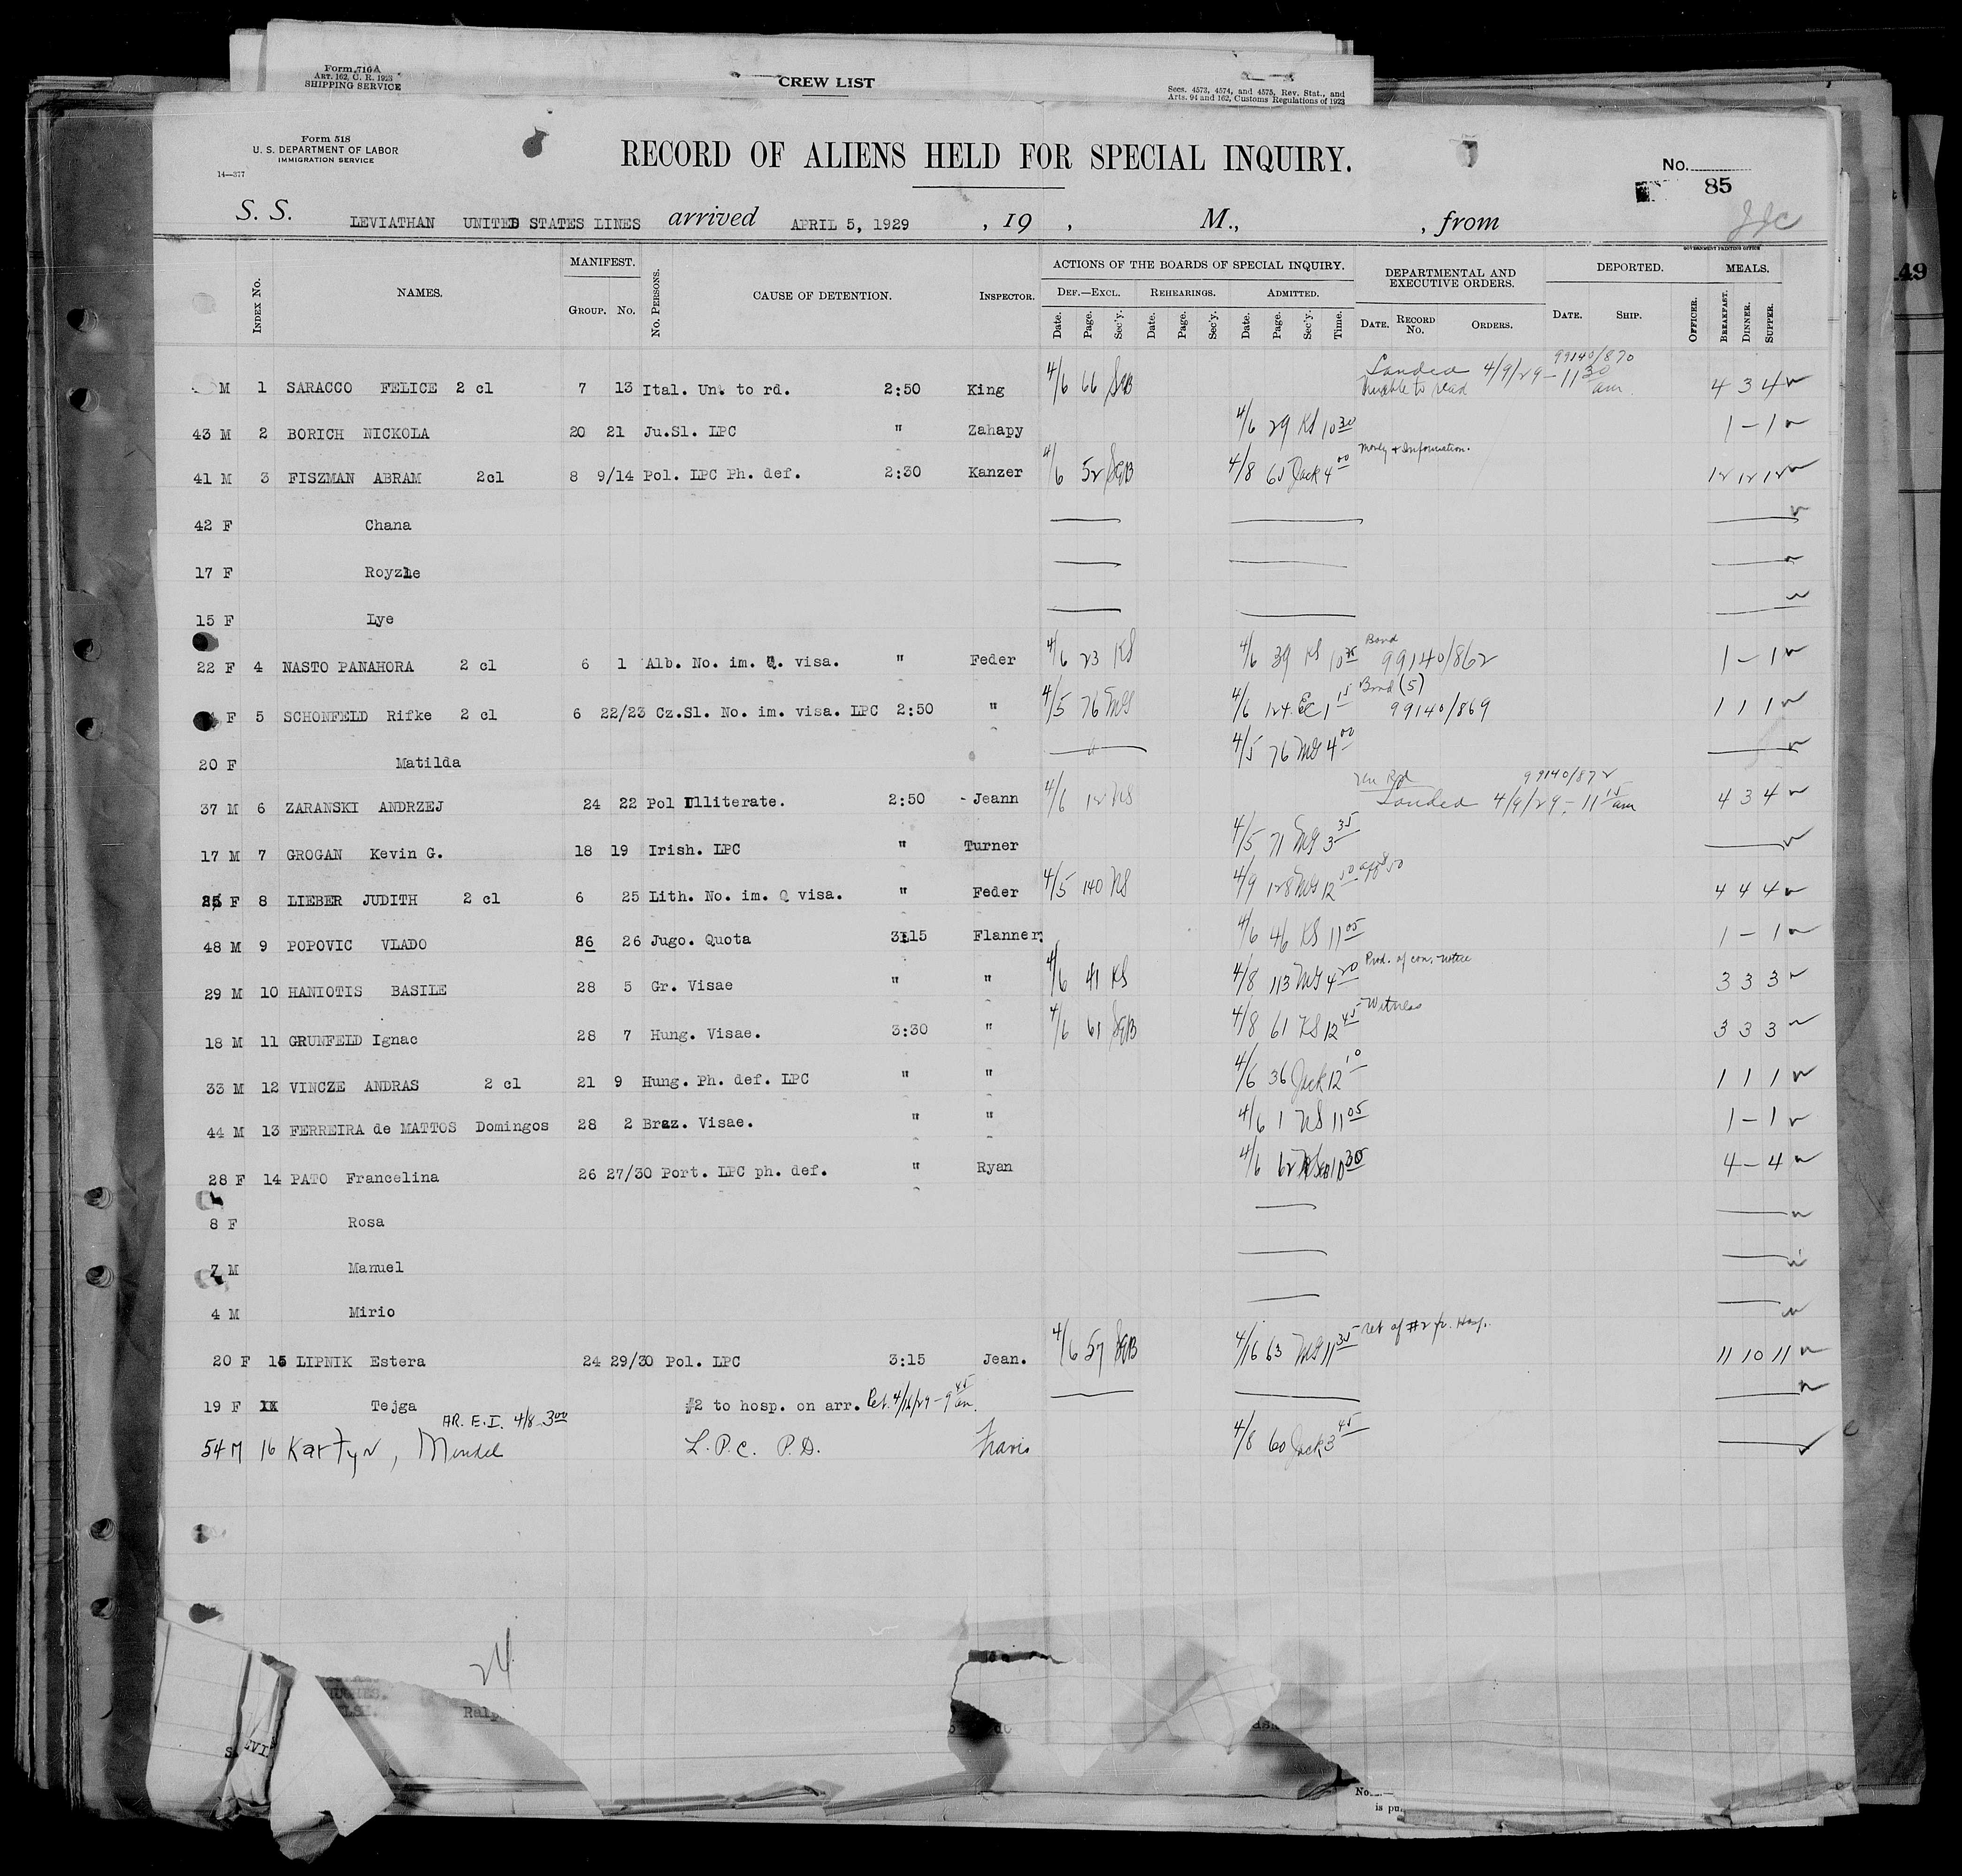 Form 710A
ART. 162, C. R. 1923
SHIPPING SERVICE
CREW LIST
Secs. 4573, 4574, and 4575, Rev. Stat., and
Arts. 94 and 162, Customs Regulations of 1923
Form 518
U. S. DEPARTMENT OF LABOR
IMMIGRATION SERVICE
14—377
RECORD OF ALIENS HELD FOR SPECIAL INQUIRY.
No.
85
S. S. LEVIATHAN UNITED STATES LINES arrived APRIL 5, 1929 , 19 , M., , from
GOVERNMENT PRINTING OFFICE
Index No. NAMES. MANIFEST. Group. No. No. Persons. CAUSE OF DETENTION. Inspector. ACTIONS OF THE BOARDS OF SPECIAL INQUIRY. Def.—Excl. Date. Page. Sec'y. Rehearings. Date. Page. Sec'y. Admitted. Date. Page. Sec'y. Time. DEPARTMENTAL AND EXECUTIVE ORDERS. Date. Record No. Orders. DEPORTED. Date. Ship. Officer. MEALS. Breakfast. Dinner. Supper.
M 1 SARACCO FELICE 2 cl 7 13 Ital. Un. to rd. 2:50 King 4/6 66 SGB Landed 4/9/29 - 11 30 am. 99140/870 Unable to read 4 3 4
43 M 2 BORICH NICKOLA 20 21 Ju.Sl. LPC " Zahapy 4/6 29 KS 10 30 1 - 1
41 M 3 FISZMAN ABRAM 2cl 8 9/14 Pol. LPC Ph. def. 2:30 Kanzer 4/6 52 SGB 4/8 65 Jack 4 00 Money & Information. 12 12 12
42 F Chana
17 F Royzle
15 F Lye
22 F 4 NASTO PANAHORA 2 cl 6 1 Alb. No. im. Q. visa. " Feder 4/6 23 KS 4/6 39 KS 10 35 Bond 99140/862 1 - 1
F 5 SCHONFELD Rifke 2 cl 6 22/23 Cz.Sl. No. im. visa. LPC 2:50 " 4/5 76 MG 4/6 124 EC 1 15 Bond (5) 99140/869 1 1 1
20 F Matilda 4/5 76 MG 4 00
37 M 6 ZARANSKI ANDRZEJ 24 22 Pol Illiterate. 2:50 Jeann 4/6 12 NS Un Rd 99140/872 Landed 4/9/29 - 11 15 am 4 3 4
17 M 7 GROGAN Kevin G. 18 19 Irish. LPC " Turner 4/5 71 MG 3 35
F 8 LIEBER JUDITH 2 cl 6 25 Lith. No. im. Q visa. " Feder 4/5 140 NS 4/9 128 MG 12 50 4 4 4
48 M 9 POPOVIC VLADO 26 26 Jugo. Quota 3:15 Flanner. 4/6 46 KS 11 05 1 - 1
29 M 10 HANIOTIS BASILE 28 5 Gr. Visae " " 4/6 41 KS 4/8 113 MG 4 20 Prod. of con. notice 3 3 3
18 M 11 GRUNFELD Ignac 28 7 Hung. Visae. 3:30 " 4/6 61 SGB 4/8 61 KS 12 45 Witness 3 3 3
33 M 12 VINCZE ANDRAS 2 cl 21 9 Hung. Ph. def. LPC " " 4/6 36 Jack 12 10 1 1 1
44 M 13 FERREIRA de MATTOS Domingos 28 2 Braz. Visae. " " 4/6 1 NS 11 05 1 - 1
28 F 14 PATO Francelina 26 27/30 Port. LPC ph. def. " Ryan 4/6 62 10 30 4 - 4
8 F Rosa
7 M Manuel
4 M Mirio
20 F 15 LIPNIK Estera 24 29/30 Pol. LPC 3:15 Jean. 4/6 57 SGB 4/16 63 MG 11 35 Ret of #2 fr. Hosp. 11 10 11
19 F Tejga #2 to hosp. on arr. Ret. 4/16/29 - 9 45 am.
AR. E.I. 4/8 3 00
54 M 16 Kartyn, Mendel L.P.C. P.D. Travis 4/8 60 Jack 3 45
24
Ralp
No.
is pu
49